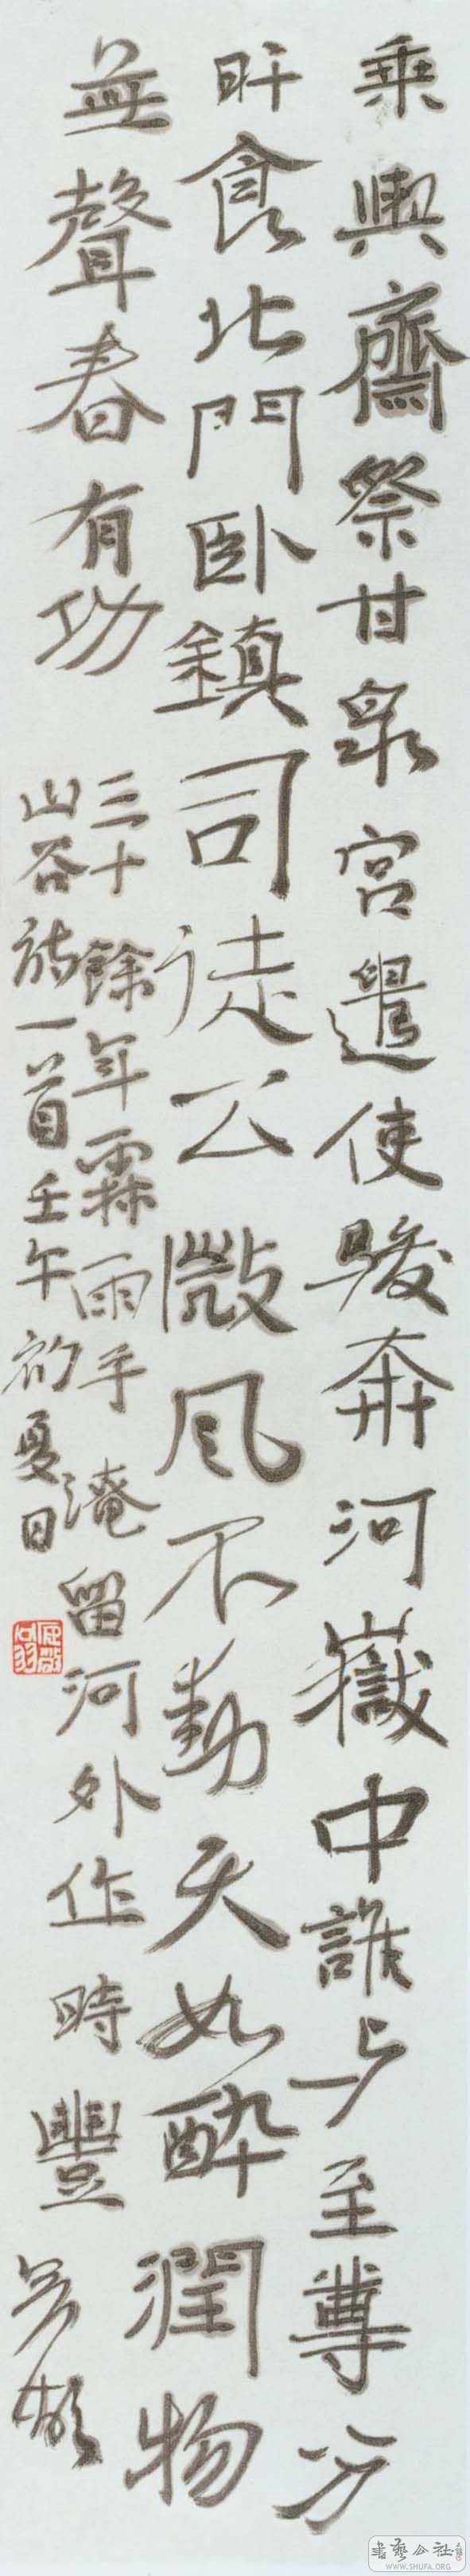 乘輿齋祭甘泉宮遣使駿奔河嶽中誰与至尊分
旰食北門卧鎮司徒公微风不動天如醉潤物
無聲春有功
三十餘年霖雨手淹留河外作時豐
山谷詩一首壬午初夏日
書藝公社
WWW.SHUFA.ORG